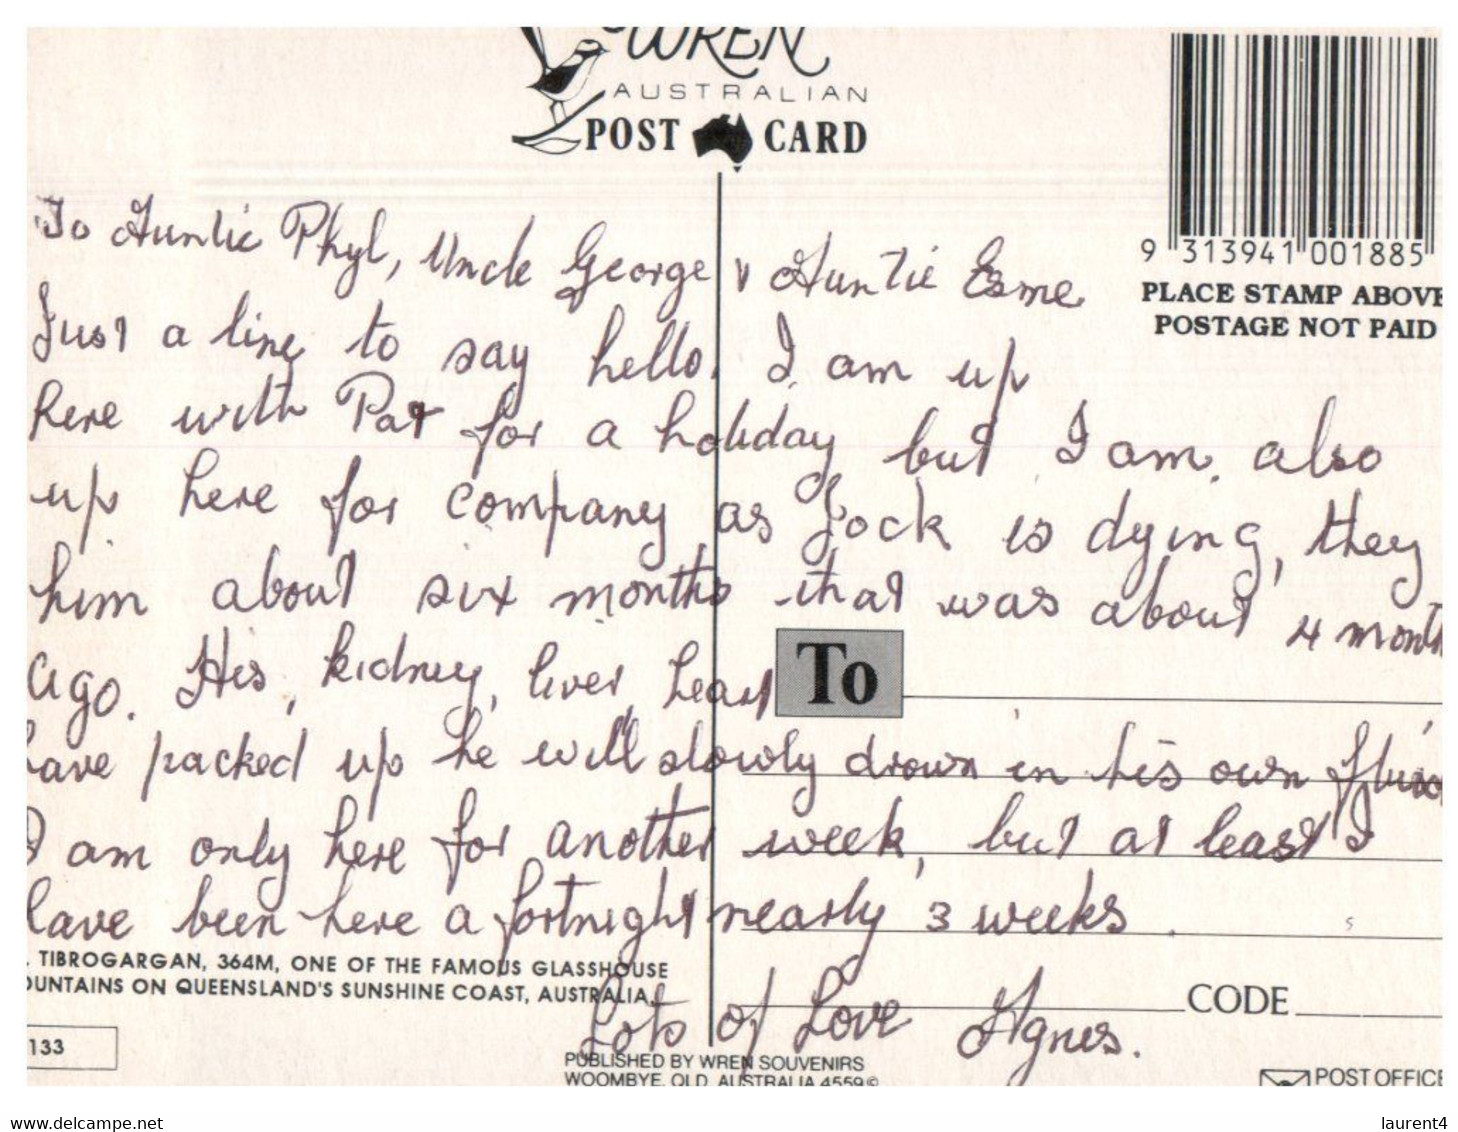 WREN
AUSTRALIAN
POST CARD
9 313941 001885
PLACE STAMP ABOVE
POSTAGE NOT PAID
To Auntie Phyl, Uncle George & Auntie Esme
Just a line to say hello. I am up
here with Pat for a holiday but I am also
up here for company as Jock is dying, they
him about six months that was about 4 month
ago. His, kidney, liver, heart
To
have packed up he will slowly drown in his own
I am only here for another week, but at least I
have been here a fortnight nearly 3 weeks.
. TIBROGARGAN, 364M, ONE OF THE FAMOUS GLASSHOUSE
OUNTAINS ON QUEENSLAND'S SUNSHINE COAST, AUSTRALIA.
CODE
Lots of Love Agnes.
133
PUBLISHED BY WREN SOUVENIRS
WOOMBYE, QLD, AUSTRALIA 4559 ©
POST OFFICE
www.delcampe.net
laurent4